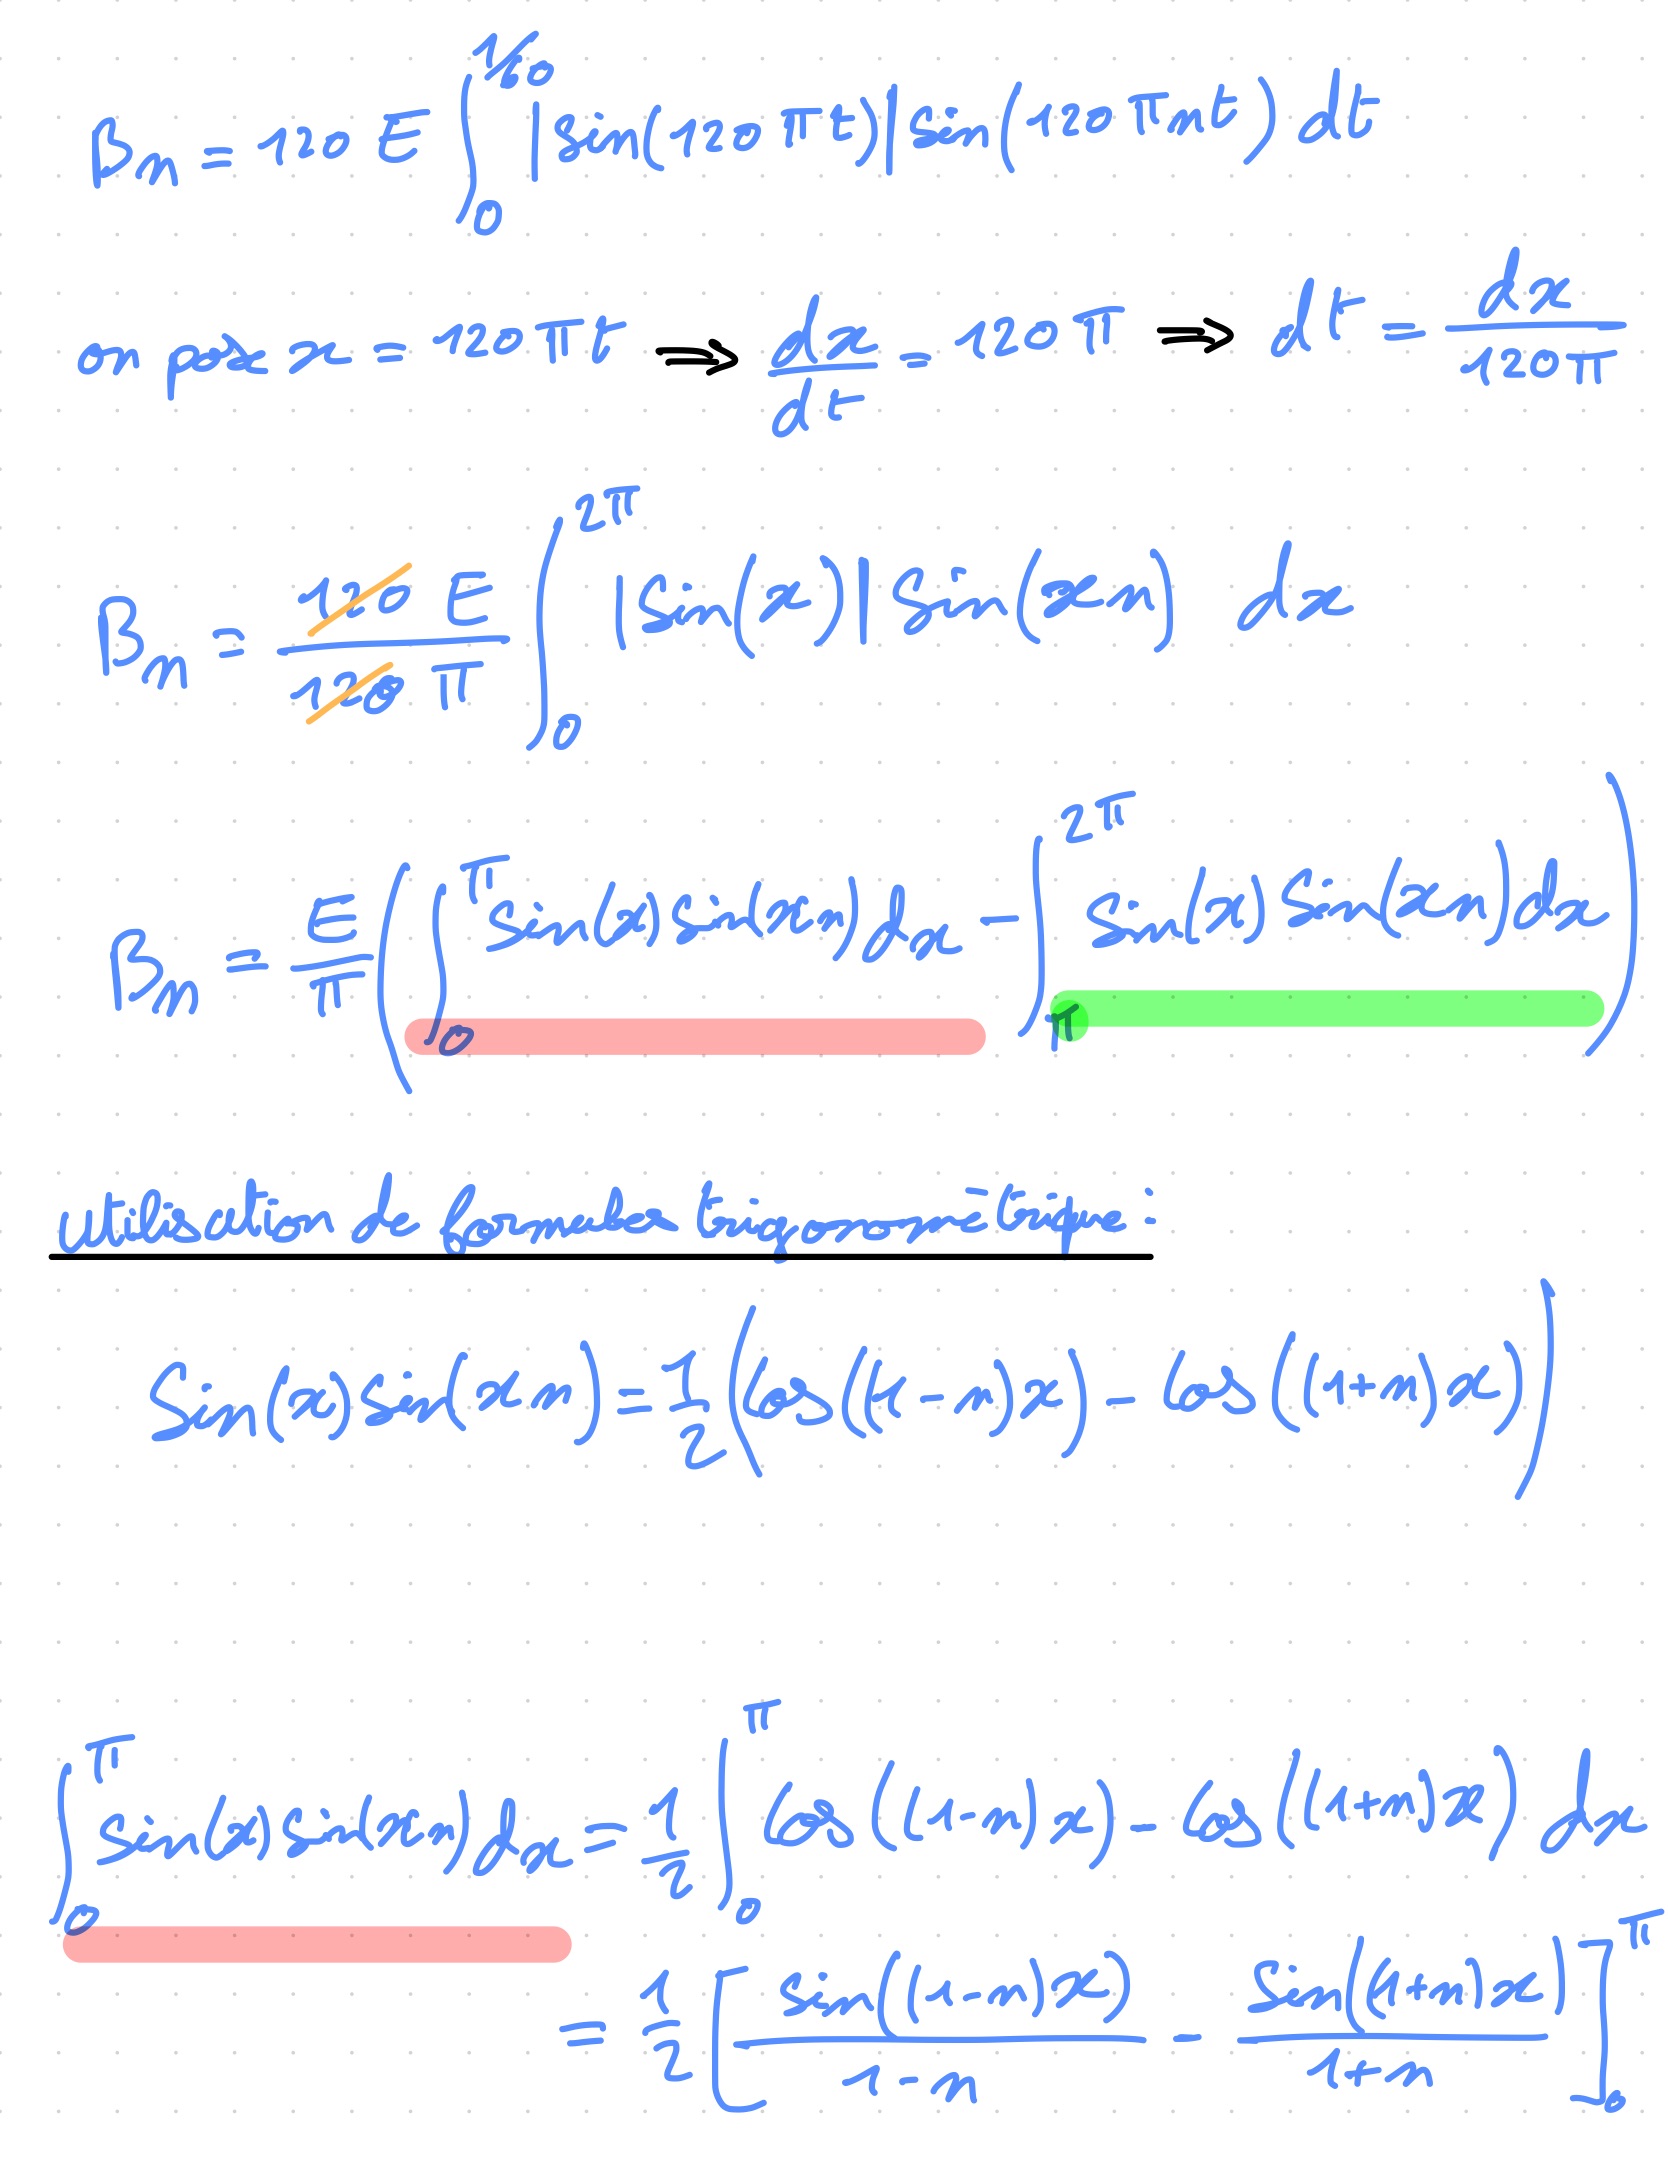 Bn = 120 E ∫₀^{1/60} |sin(120πt)| sin(120πnt) dt
on pose x = 120πt ⇒ dx/dt = 120π ⇒ dt = dx/120π
Bn = 120 E / 120 π ∫₀^{2π} |sin(x)| sin(xn) dx
Bn = E/π ( ∫₀^π sin(x) sin(xn) dx − ∫_π^{2π} sin(x) sin(xn) dx )
utilisation de formules trigonométrique :
Sin(x) sin(xn) = 1/2 ( Cos((1−n)x) − Cos((1+n)x) )
∫₀^π sin(x) sin(xn) dx = 1/2 ∫₀^π Cos((1−n)x) − Cos((1+n)x) dx
= 1/2 [ sin((1−n)x) / 1−n − Sin((1+n)x) / 1+n ]₀^π